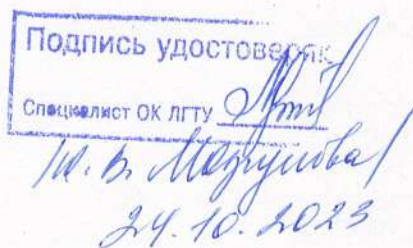 Подпись удостоверяю
Специалист ОК ЛГТУ
24.10.2023